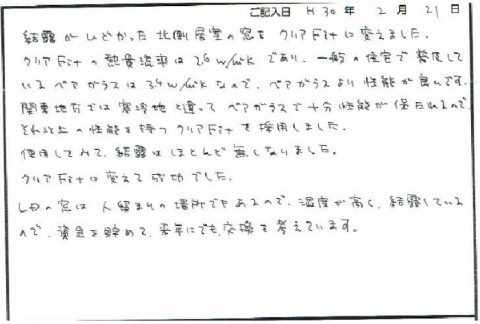 ご記入日 H 30 年 2 月 21 日
結露がひどかった北側居室の窓をクリアFitに変えました。
クリアFitの熱貫流率は2.6w/㎡Kであり、一般の住宅で普及して
いるペアガラスは3.4w/㎡Kなので、ペアガラスより性能が良いです。
関東地方では寒冷地と違ってペアガラスで十分性能が保たれるので
それ以上の性能を持つクリアFitを採用しました。
使用してみて、結露はほとんど無くなりました。
クリアFitに変えて成功でした。
LDの窓は人溜まりの場所でもあるので、湿度が高く、結露している
ので、資金を貯めて、来年にでも交換を考えています。